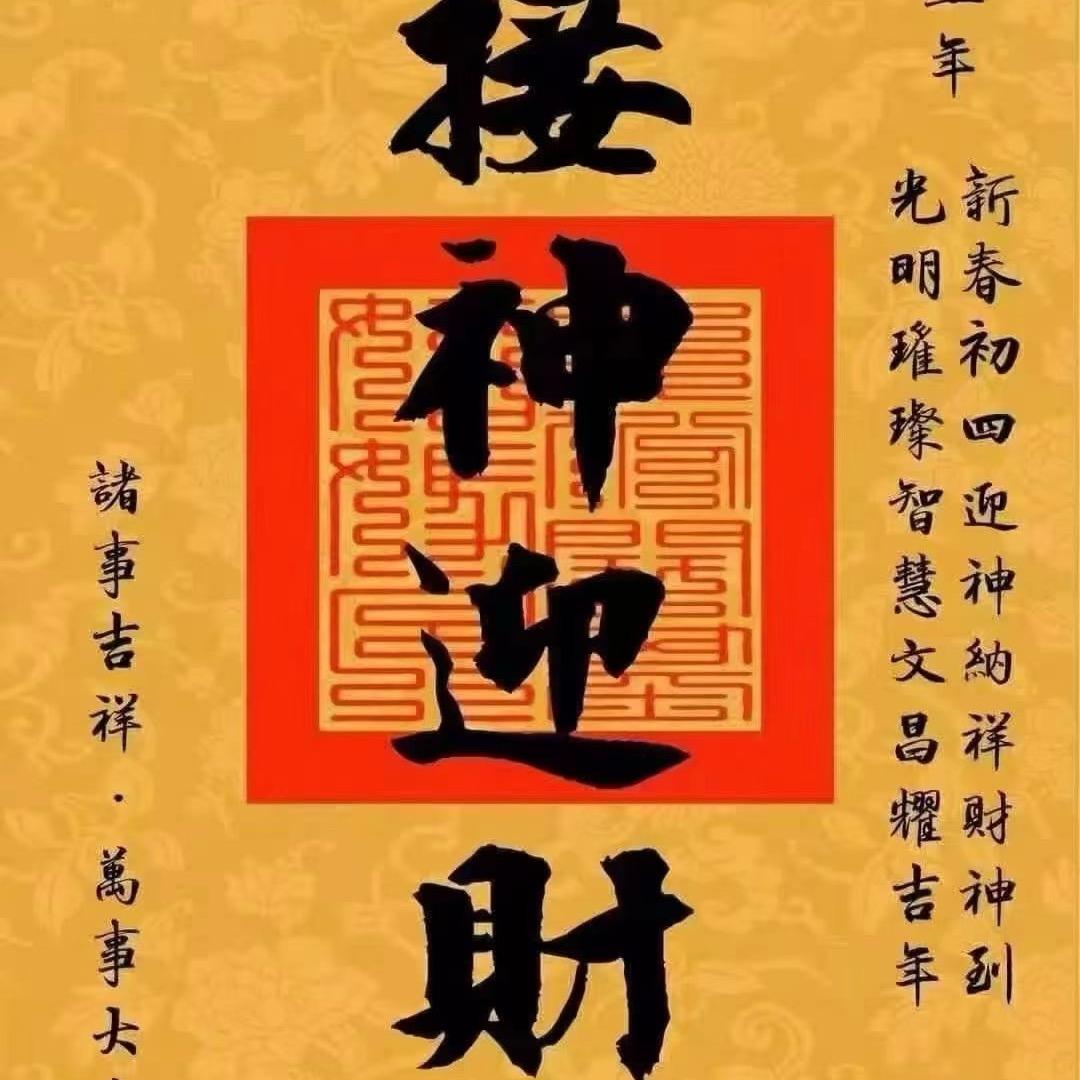 年
新春初四迎神納祥財神到
光明璀璨智慧文昌耀吉年
接神迎財
諸事吉祥·萬事大